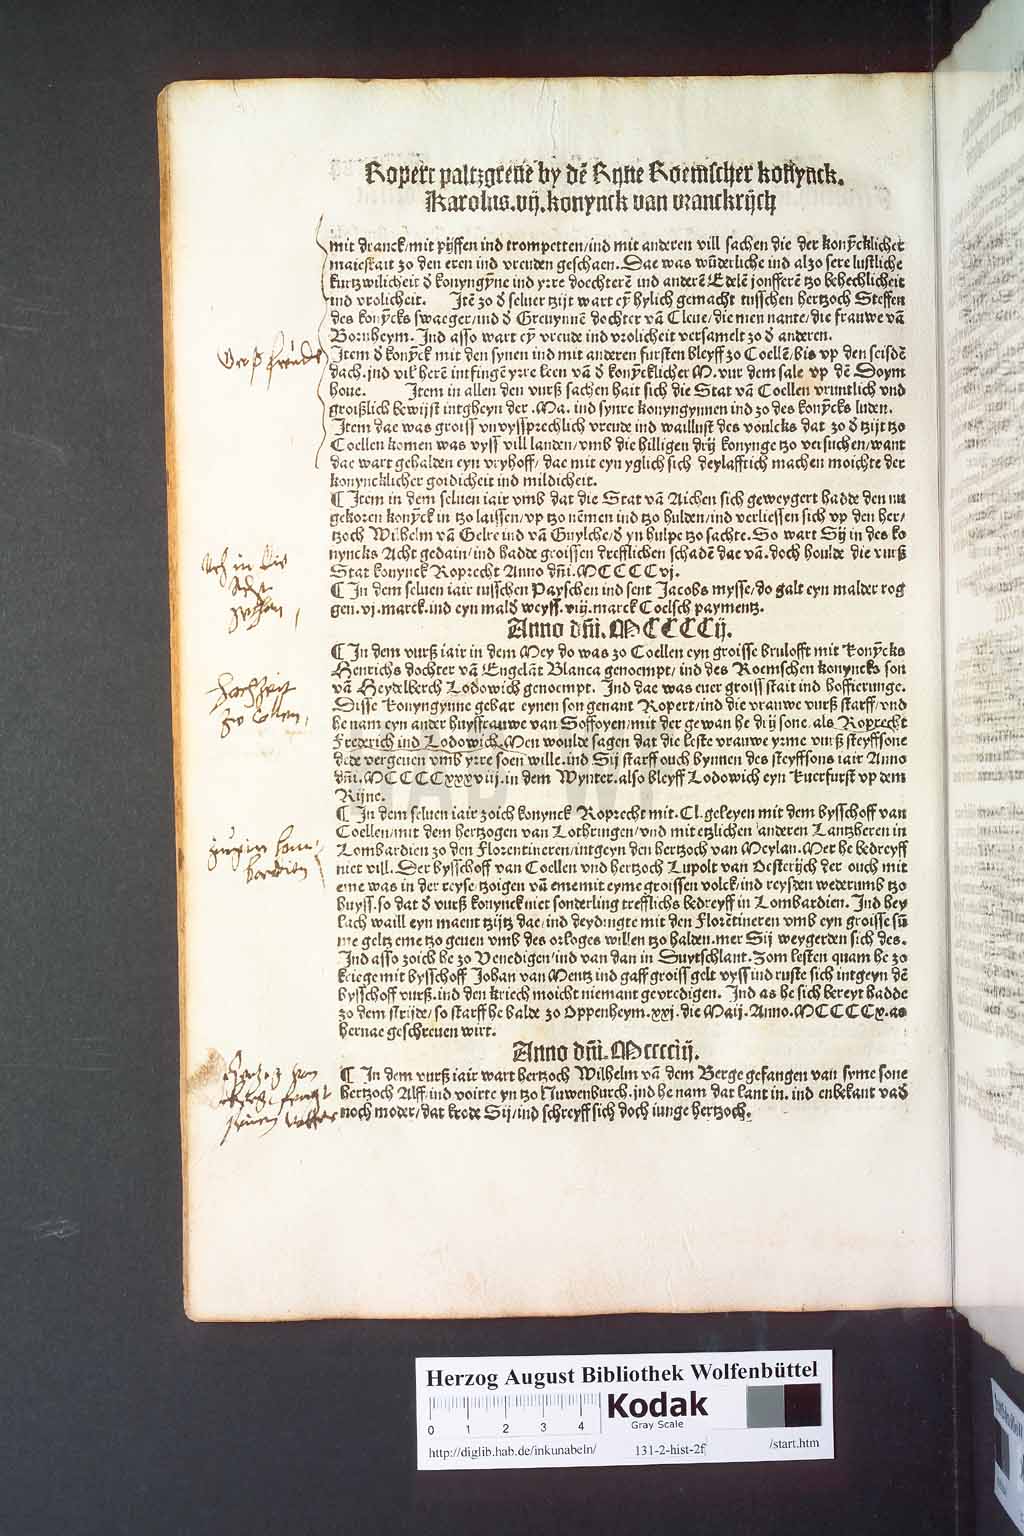 Ropert paltzgreue by dē Rijne Roemscher konynck.
Karolus.vij.konynck van vranckrijch
mit dranck/mit pijffen ind trompetten/ind mit anderen vill sachen die der konȳcklicher
maiestait zo den eren ind vreuden geschaen. Dae was wūderliche ind alzo sere lustliche
kurtzwilicheit đ konyngȳne ind yrre doechterē ind anderē Edelē jonfferē tzo behechlicheit
ind vrolicheit. Itē zo đ seluer tzijt wart eȳ hylich gemacht tusschen hertzoch Steffen
des konȳcks swaeger/ind đ Greuynnē dochter vā Cleue/die men nante/die frauwe vā
Bornheym. Ind asso wart eȳ vreude ind vrolicheit versamelt zo đ anderen.
Item đ konȳck mit den synen ind mit anderen fursten bleyff zo Coellē/bis vp den seisdē
dach.ind vil herē intfingē yrre leen vā đ konȳcklicher M.vur dem sale vp dē Doym
houe. Item in allen den vurß sachen hait sich die Stat vā Coellen vruntlich vnd
groißlich bewijst intgheyn der .Ma. ind synre konyngynnen ind zo des konȳcks luden.
Item dae was groiss vnvyssprechlich vreude ind waillust des voulcks dat zo đ tzijt tzo
Coellen komen was vyss vill landen/vmb die hilligen drij konynge tzo versuchen/want
dae wart gehalden eyn vryhoff/dae mit eyn yglich sich deylafftich machen moichte der
konyncklicher goidicheit ind mildicheit.
¶ Item in dem seluen iair vmb dat die Stat vā Aichen sich geweygert hadde den nu
gekoren konȳck in tzo laissen/vp tzo nēmen ind tzo hulden/ind verliessen sich vp den her/
tzoch Wilhelm vā Gelre ind vā Guylche/đ yn hulpe tzo sachte. So wart Sij in des ko
nyncks Acht gedain/ind hadde groissen drefflichen schadē dae vā.doch houlde die vurß
Stat konynck Roprecht Anno dn̄i.MCCCCvj.
¶ In dem seluen iair tusschen Payschen ind sent Jacobs mysse/do galt eyn malder rog
gen.vj.marck.ind eyn malđ weyss.viij.marck Coelsch paymentz.
Anno dn̄i.MCCCCij.
¶ In dem vurß iair in dem Mey do was zo Coellen eyn groisse brulofft mit konȳcks
Henrichs dochter vā Engelāt Blanca genoempt/ind des Roemschen konyncks son
vā Heydelberch Lodowich genoempt. Ind dae was euer groiss stait ind hoffierunge.
Disse konyngynne gebar eynen son genant Ropert/ind die vrauwe vurß starff/vnd
he nam eyn ander huysfrauwe van Soffoyen/mit der gewan he drij sone.als Roprecht
Frederich ind Lodowich.Men woulde sagen dat die leste vrauwe yrme vurß steyffsone
dede vergeuen vmb yrre soen wille.ind Sij starff ouch bynnen des steyffsons iair Anno
dn̄i.MCCCCxxxviij.in dem Wynter.also bleyff Lodowich eyn kuerfurst vp dem
Rijne.
¶ In dem seluen iair zoich konynck Roprecht mit.Cl.geleyen mit dem bysschoff van
Coellen/mit dem hertzogen van Lothringen/vnd mit etzlichen anderen Lantzheren in
Lombardien zo den Florentineren/intgeyn den hertzoch van Meylan.Mer he bedreyff
niet vill. Der bysschoff van Coellen vnd hertzoch Lupolt van Oesterijch der ouch mit
eme was in der reyse tzoigen vā eme mit eyme groissen volck/ind reysden wederumb tzo
huyss.so dat đ vurß konynck niet sonderling trefflichs bedreyff in Lombardien. Ind bey
lach waill eyn maent tzijtz dae/ind deydingte mit den Florētineren vmb eyn groisse sū
me geltz eme tzo geuen vmb des orloges willen tzo halden.mer Sij weygerden sich des.
Ind asso zoich he zo Venedigen/ind van dan in Duytschlant. Zom lesten quam he zo
kriege mit bysschoff Johan van Mentz ind gaff groiss gelt vyss ind ruste sich intgeyn dē
bysschoff vurß.ind den kriech moicht niemant gevredigen. Ind as he sich bereyt hadde
zo dem strijde/so starff he balde zo Oppenheym.xxj.die Maij.Anno.MCCCCx.as
hernae geschreuen wirt.
Anno dn̄i.Mcccciij.
¶ In dem vurß iair wart hertzoch Wilhelm vā dem Berge gefangen van syme sone
hertzoch Alff.ind voirte yn tzo Nuwenburch.ind he nam dat lant in. ind enbekant vađ
noch moder/dat krode Sij/ind schreyff sich doch iunge hertzoch.
Herzog August Bibliothek Wolfenbüttel
0 1 2 3 4
Kodak
Gray Scale
http://diglib.hab.de/inkunabeln/ 131-2-hist-2f /start.htm